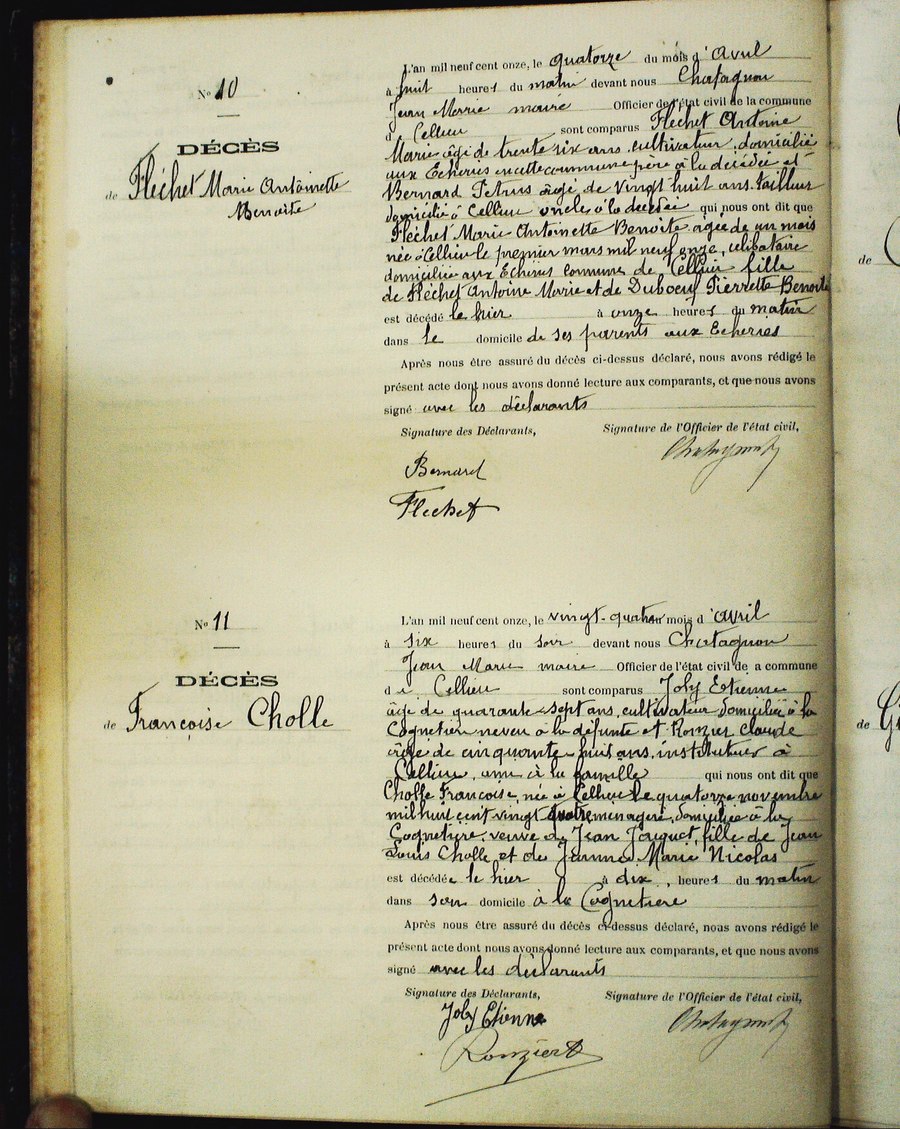 N° 10
DÉCÈS
de Fléchet Marie Antoinette
Benoîte
L'an mil neuf cent onze, le quatorze du mois d'Avril
à huit heures du matin devant nous Chatagnon
Jean Marie maire Officier de l'état civil de la commune
d e Cellieu sont comparus Fléchet Antoine
Marie âgé de trente six ans, cultivateur, domicilié
aux Echeries en cette commune père à la décédée et
Bernard Petrus âgé de vingt huit ans tailleur
domicilié à Cellieu oncle à la décédée qui nous ont dit que
Fléchet Marie Antoinette Benoîte âgée de un mois
née à Cellieu le premier mars mil neuf onze, célibataire
domiciliée aux Echeries commune de Cellieu fille
de Fléchet Antoine Marie et de Duboeuf Pierrette Benoite
est décédé le hier à onze heures du matin
dans le domicile de ses parents aux Echeries
Après nous être assuré du décès ci-dessus déclaré, nous avons rédigé le
présent acte dont nous avons donné lecture aux comparants, et que nous avons
signé avec les déclarants
Signature des Déclarants, Signature de l'Officier de l'état civil,
Chatagnon
Bernard
Flechet
N° 11
DÉCÈS
de Françoise Cholle
L'an mil neuf cent onze, le vingt-quatre du mois d'avril
à six heures du soir devant nous Chatagnon
Jean Marie maire Officier de l'état civil de a commune
d e Cellieu sont comparus Joly Etienne
âgé de quarante-sept ans, cultivateur domicilié à la
Cognetière neveu à la défunte et Ronzier Claude
âgé de cinquante huit ans, instituteur à
Cellieu, ami à la famille qui nous ont dit que
Cholle Françoise, née à Cellieu le quatorze novembre
mil huit cent vingt quatre ménagère, domiciliée à la
Cognetière, veuve de Jean Jouguet, fille de Jean
Louis Cholle et de Jeanne Marie Nicolas
est décédée le hier à dix, heures du matin
dans son domicile à la Cognetiere
Après nous être assuré du décès ci-dessus déclaré, nous avons rédigé le
présent acte dont nous avons donné lecture aux comparants, et que nous avons
signé avec les déclarants
Signature des Déclarants, Signature de l'Officier de l'état civil,
Joly Etienne Chatagnon
Ronzier
de
de